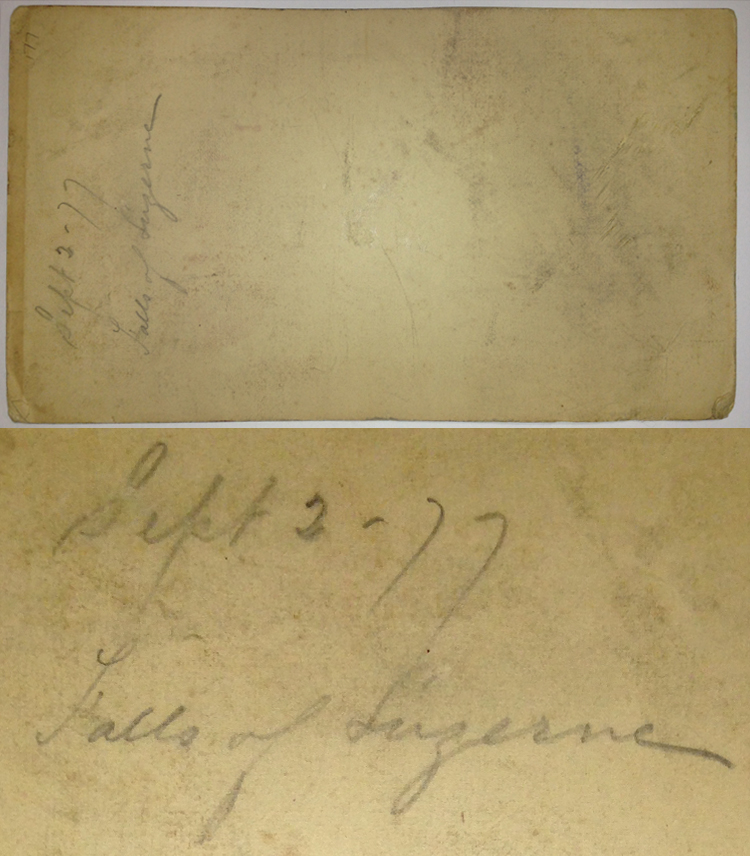 Sept 2-77
Falls of Luzerne
Sept 2-77
Falls of Luzerne